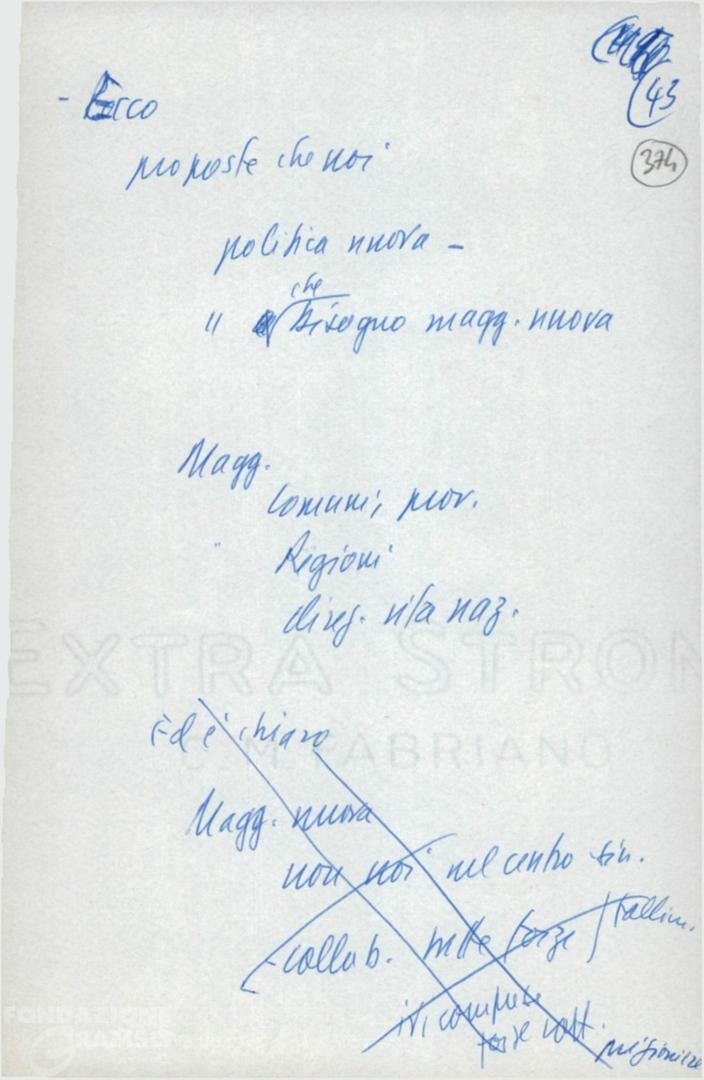 (43
374
- Ecco
proposte che noi
politica nuova -
che
" bisogno magg. nuova
Magg.
Comuni, prov.
Regioni
direz. vita naz.
EXTRA STRON
C.M. FABRIANO
Ed è chiaro
Magg. nuova
non noi nel centro sin.
- collab. tutte forze
fallim.
ivi comprese
forze catt.
FONDAZIONE
GRAMSCI